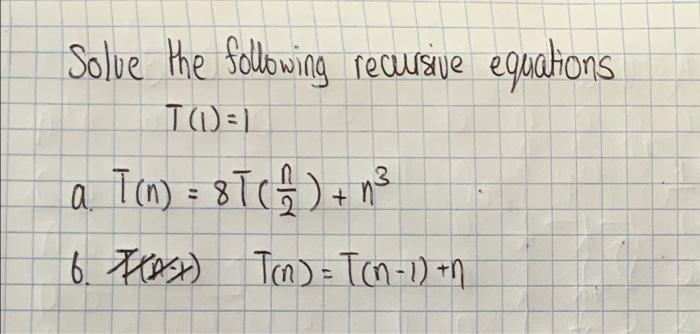 Solve the following recursive equations
T(1)=1
a. T(n) = 8T(n/2) + n³
b. T(n) = T(n-1) + n